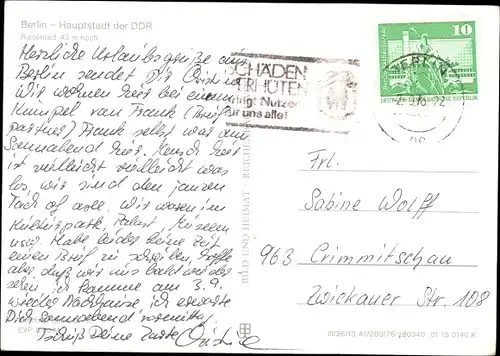 Berlin – Hauptstadt der DDR
Riesenrad 43 m hoch
Herzliche Urlaubsgrüße aus
Berlin sendet Dir Christine
Wir wohnen hier bei einem
Kumpel von Frank (Brief-
partner) Frank selbst war am
Sonnabend hier. Mensch hier
ist vielleicht vielleicht was
los, wir sind den ganzen
Tach of
Kulturpark, Palast Museen
usw. Habe leider keine Zeit
einen Brief zu schreiben, hoffe
aber, daß wir uns bald wieder
sehen, ich komme am 3.9.
wieder Nachhause, ich erwarte
Dich Sonnabend vormittag
Tschüß Deine
SCHÄDEN
VERHÜTEN
bringt Nutzen
für uns alle!
BERLIN
10
DEUTSCHE DEMOKRATISCHE REPUBLIK
BILD UND HEIMAT · REICHENBACH
Frl.
Sabine Wolff
963 Crimmitschau
Zwickauer Str. 108
EVP
III/26/13 A1/280/76 280340 01 15 0140 K